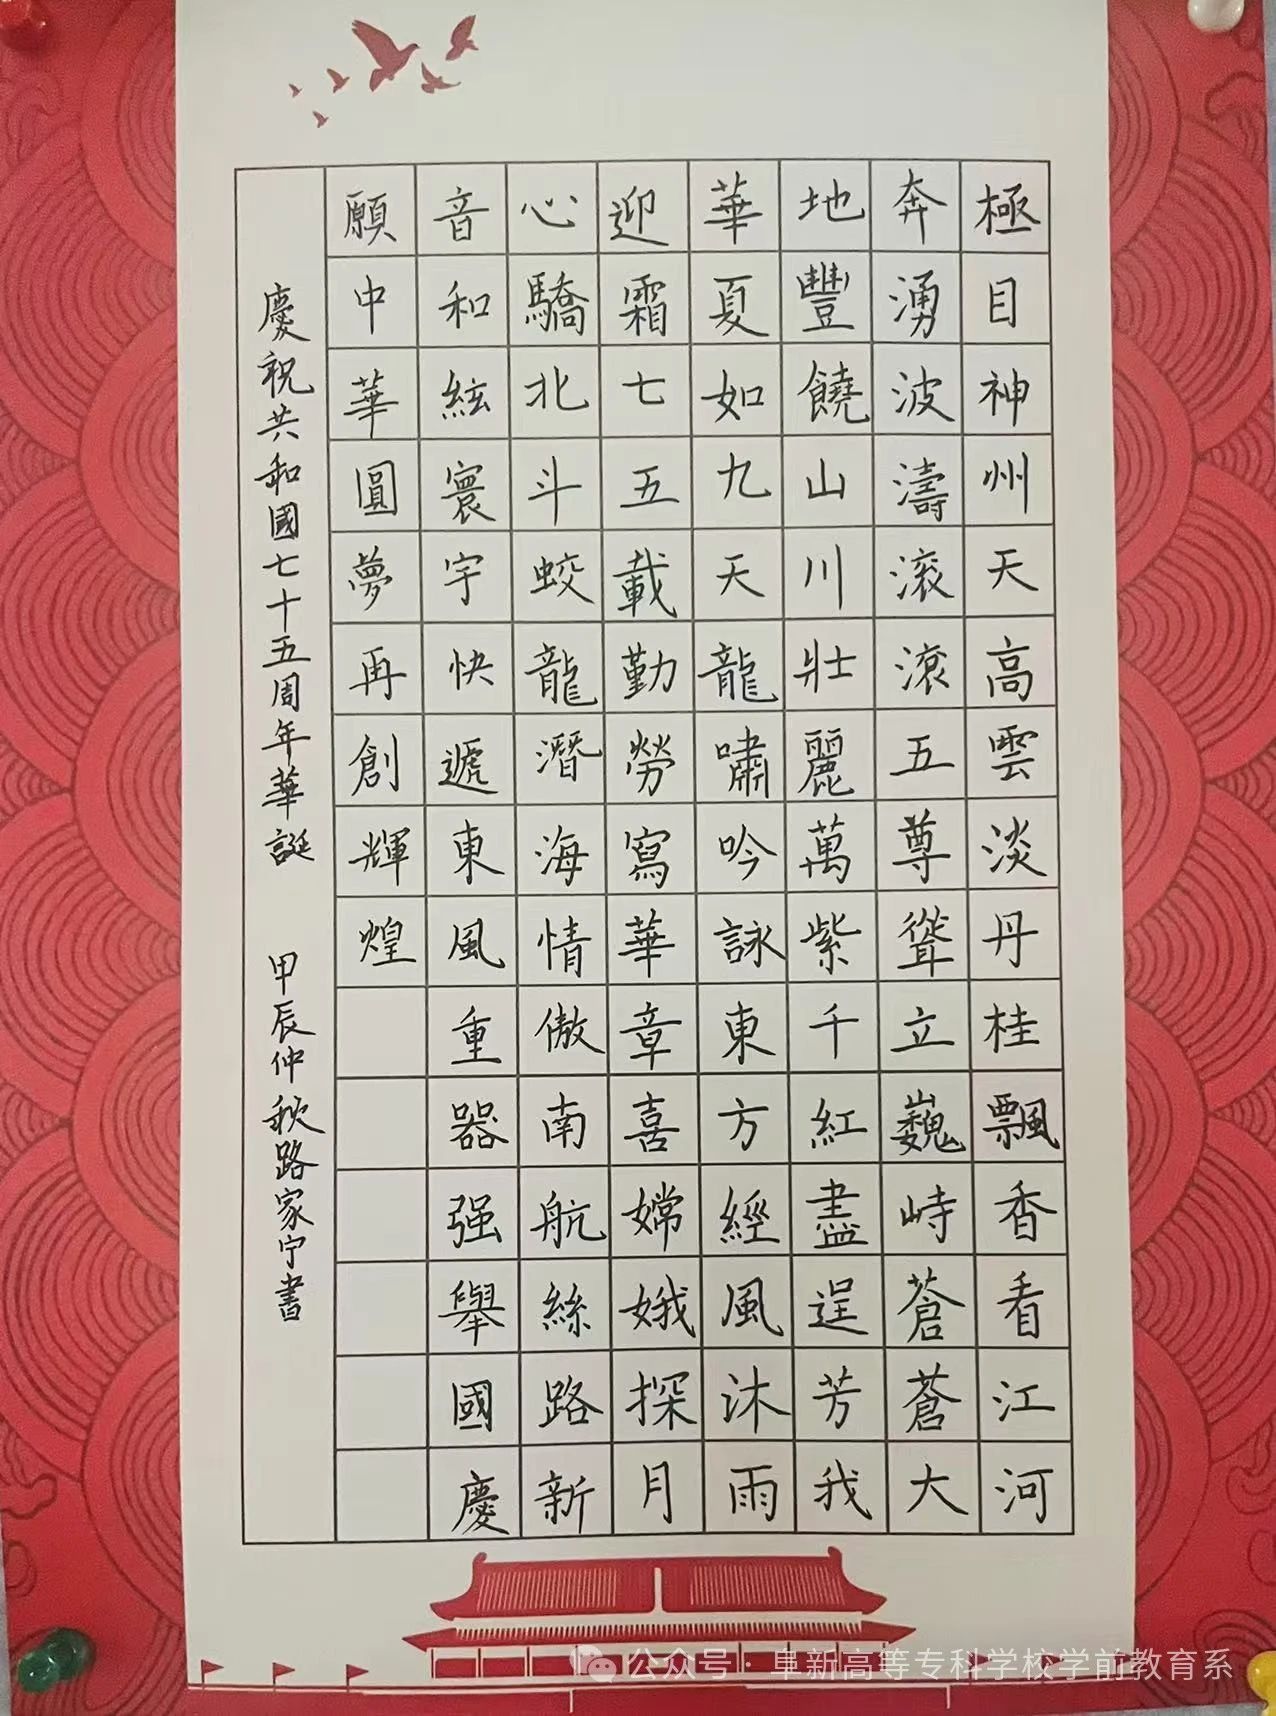 極目神州天高雲淡丹桂飄香看江河
奔湧波濤滚滾五尊聳立巍峙蒼蒼大
地豐饒山川壯麗萬紫千紅盡逞芳我
華夏如九天龍嘯吟詠東方經風沐雨
迎霜七五載勤勞寫華章喜嫦娥探月
心驕北斗蛟龍潛海情傲南航絲路新
音和絃寰宇快遞東風重器强舉國慶
願中華圓夢再創輝煌
慶祝共和國七十五周年華誕 甲辰仲秋路家宁書
公众号·阜新高等专科学校学前教育系